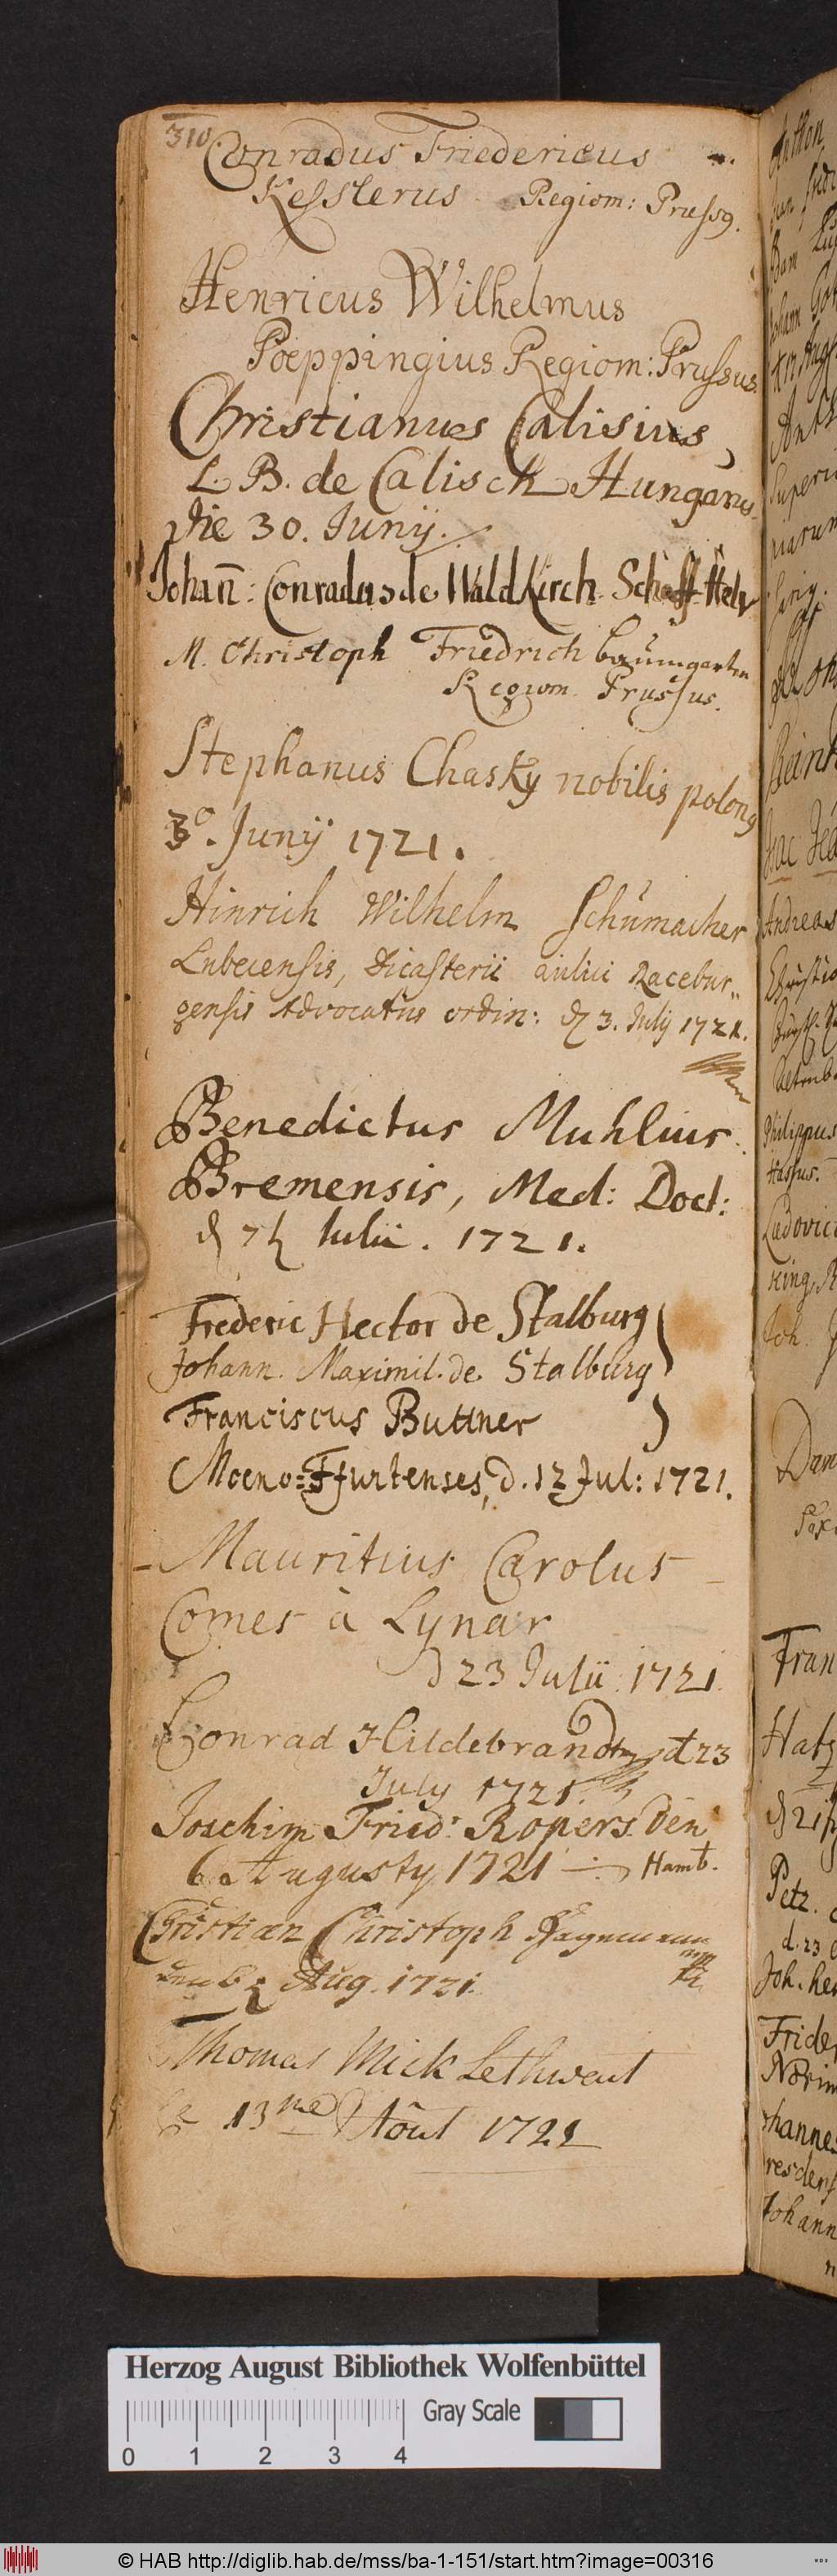 310.
Conradus Friedericus
Kesslerus Regiom: Pruss9.
Henricus Wilhelmus
Poeppingius Regiom: Prussus.
Christianus Calisius,
L. B. de Calisch Hungarus.
Die 30. Junij.
Johan̄: Conradus de Waldkirch Schaff. Helv
M. Christoph Friedrich Baumgarten
Regiom. Prussus.
Stephanus Chasky nobilis polon9
3º. Junij 1721.
Hinrich Wilhelm Schumacher
Lubecensis, Dicasterii aulici Racebur„
gensis Advocatus ordin: d 3. July 1721.
Benedictus Muhlius.
Bremensis, Med: Doct:
d 7 Julii. 1721.
Frederic Hector de Stalburg
Johann. Maximil. de. Stalburg
Franciscus Buttner
Moeno=Ffurtenses, d. 12 Jul: 1721.
Mauritius Carolus
Comes à Lynar
d 23 Julii 1721
Conrad Hildebrandt d 23
July 1721.
Joachim Fried: Ropers. Den
6. Augusty 1721 Hamb.
Christian Christoph Hagemann
den 6 Aug. 1721.
Thomas Micklethwait
le 13me Aôut 1721
Herzog August Bibliothek Wolfenbüttel
Gray Scale
0 1 2 3 4
© HAB http://diglib.hab.de/mss/ba-1-151/start.htm?image=00316